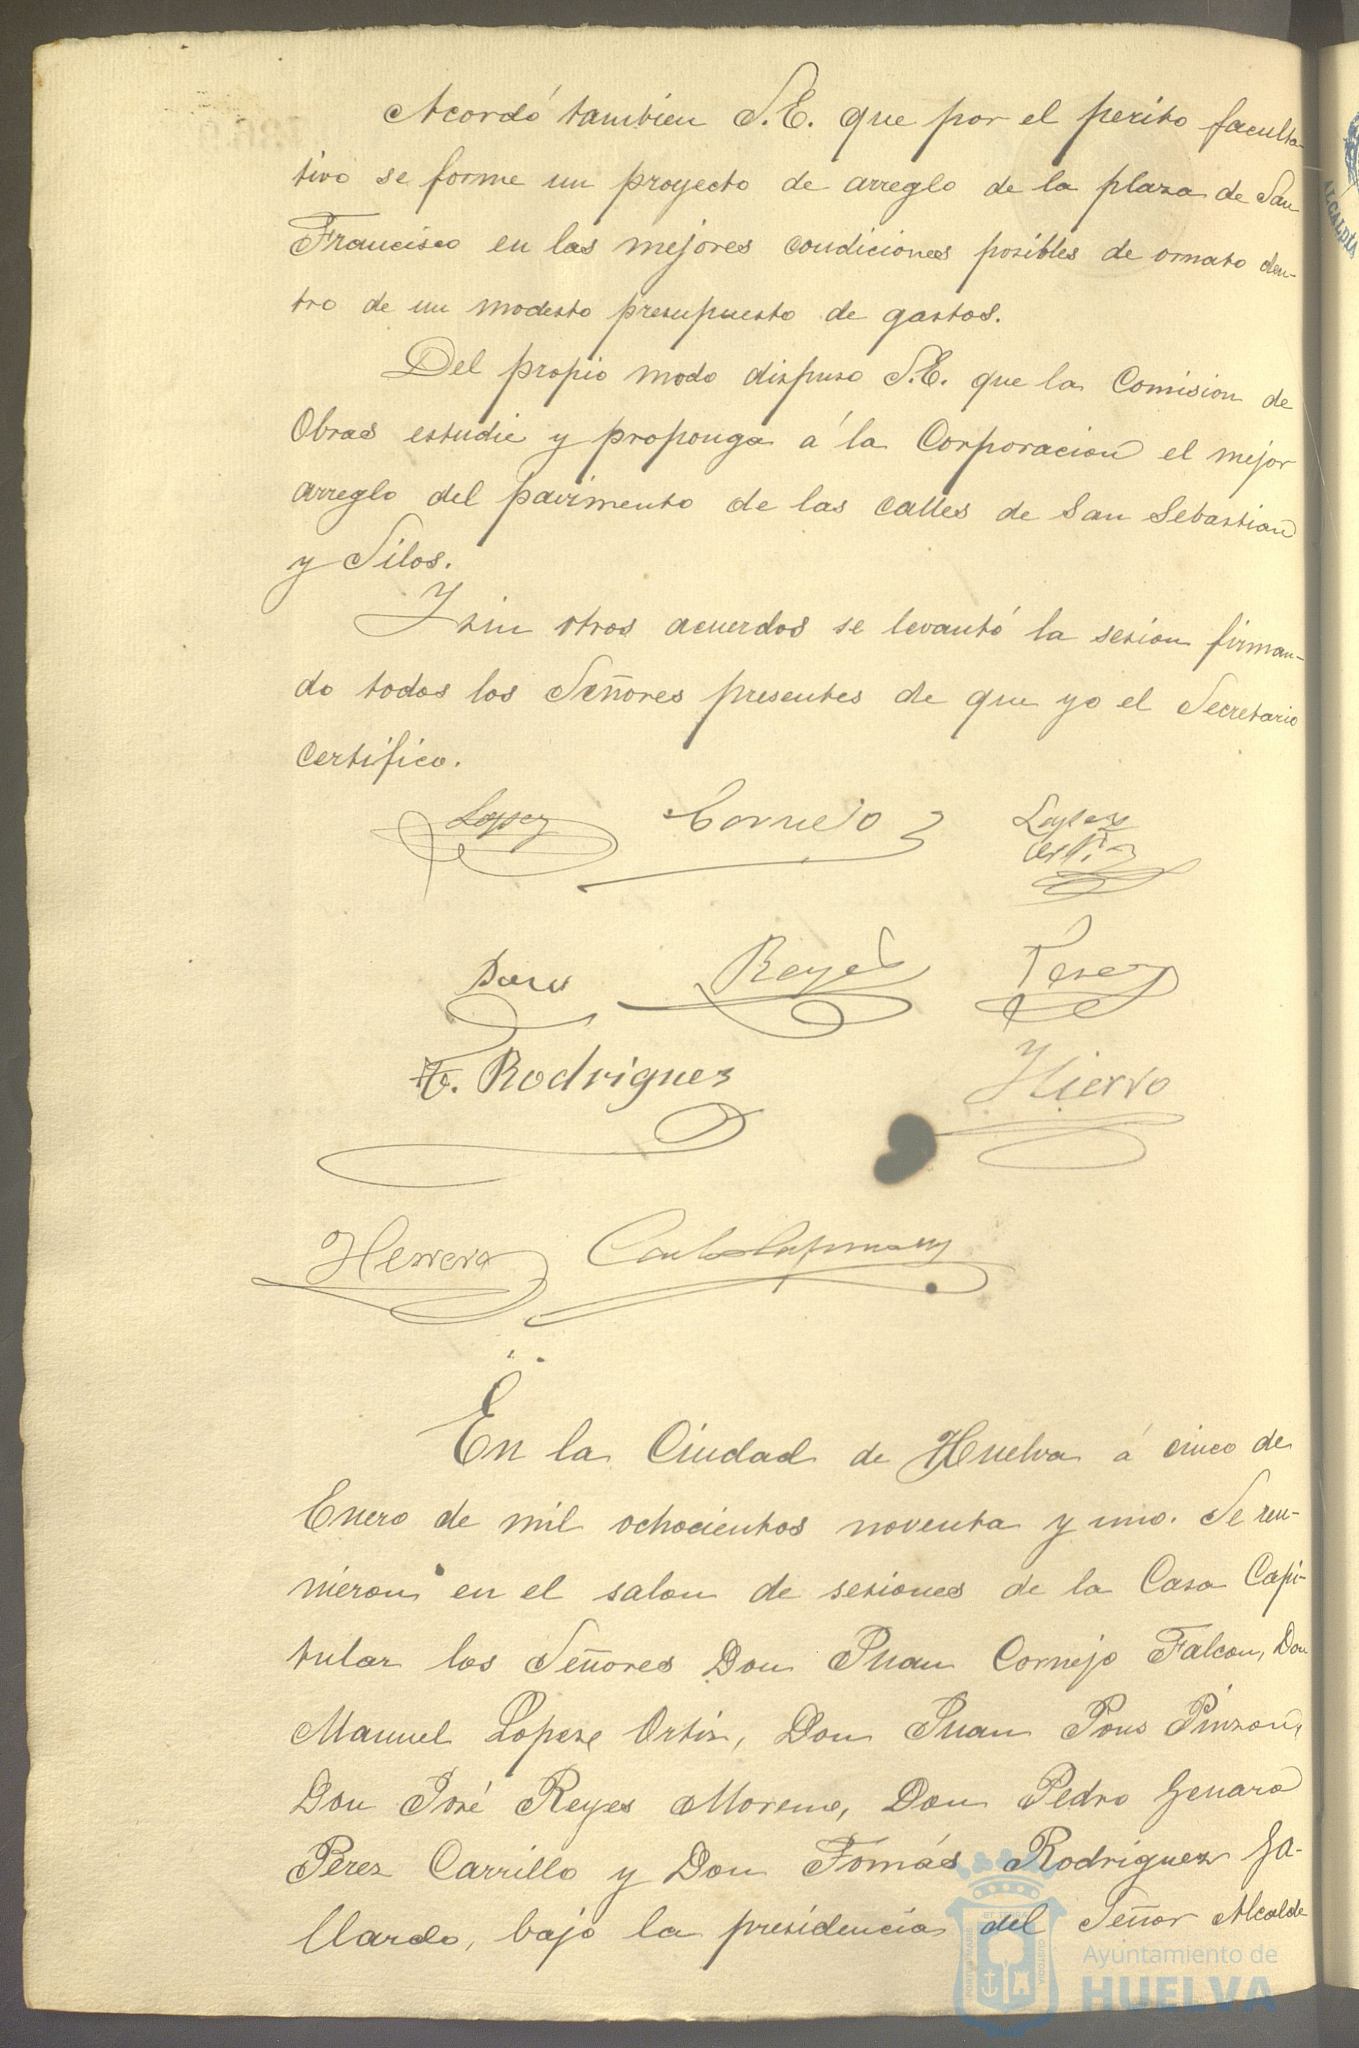 Acordó tambien S.E. que por el perito faculta-
tivo se forme un proyecto de arreglo de la plaza de San
Francisco en las mejores condiciones posibles de ornato den-
tro de un modesto presupuesto de gastos.
Del propio modo dispuso S.E. que la Comision de
Obras estudie y proponga á la Corporacion el mejor
arreglo del pavimento de las calles de San Sebastian
y Silos.
Y sin otros acuerdos se levantó la sesion firman-
do todos los Señores presentes de que yo el Secretario
certifico.
Lopez Cornejo Lopez
Ortiz
Reyes Perez
T. Rodriguez Hierro
Herrera
En la Ciudad de Huelva á cinco de
Enero de mil ochocientos noventa y uno. Se reu-
nieron en el salon de sesiones de la Casa Capi-
tular los Señores Don Juan Cornejo Falcon, Don
Manuel Lopez Ortiz, Don Juan Pons Pinzon,
Don José Reyes Moreno, Don Pedro Genaro
Perez Carrillo y Don Tomás Rodriguez Ga-
llardo, bajo la presidencia del Señor Alcalde
ALCALDIA
PORTUS MARIS
ET TERRÆ
CUSTODIA
Ayuntamiento de
HUELVA